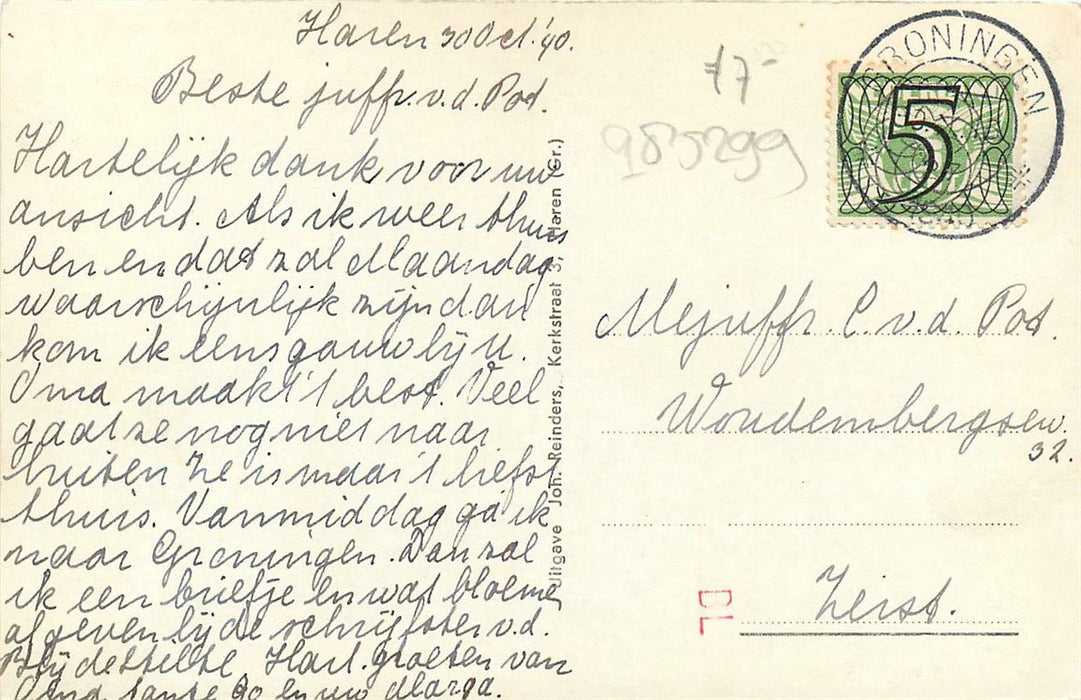 Haren 30 Oct. '40.
Beste juffr. v.d. Pod.
Hartelijk dank voor uw
ansicht. Als ik weer thuis
ben en dat zal Maandag
waarschijnlijk zijn dan
kom ik eens gauw bij u.
Oma maakt 't best. Veel
gaat ze nog niet naar
buiten ze is maar 't liefst
thuis. Vanmiddag ga ik
naar Groningen. Dan zal
ik een briefje en wat bloemen
afgeven bij de schrijfster v.d.
Blijde stilte. Hart. groeten van
Oma, tante Jo en uw Marga.
Uitgave Joh. Reinders, Kerkstraat 3, Haren (Gr.)
f7-
985299
GRONINGEN
5
Mejuffr. C. v.d. Pod.
Woudenbergsew.
32.
Zeist.
DL